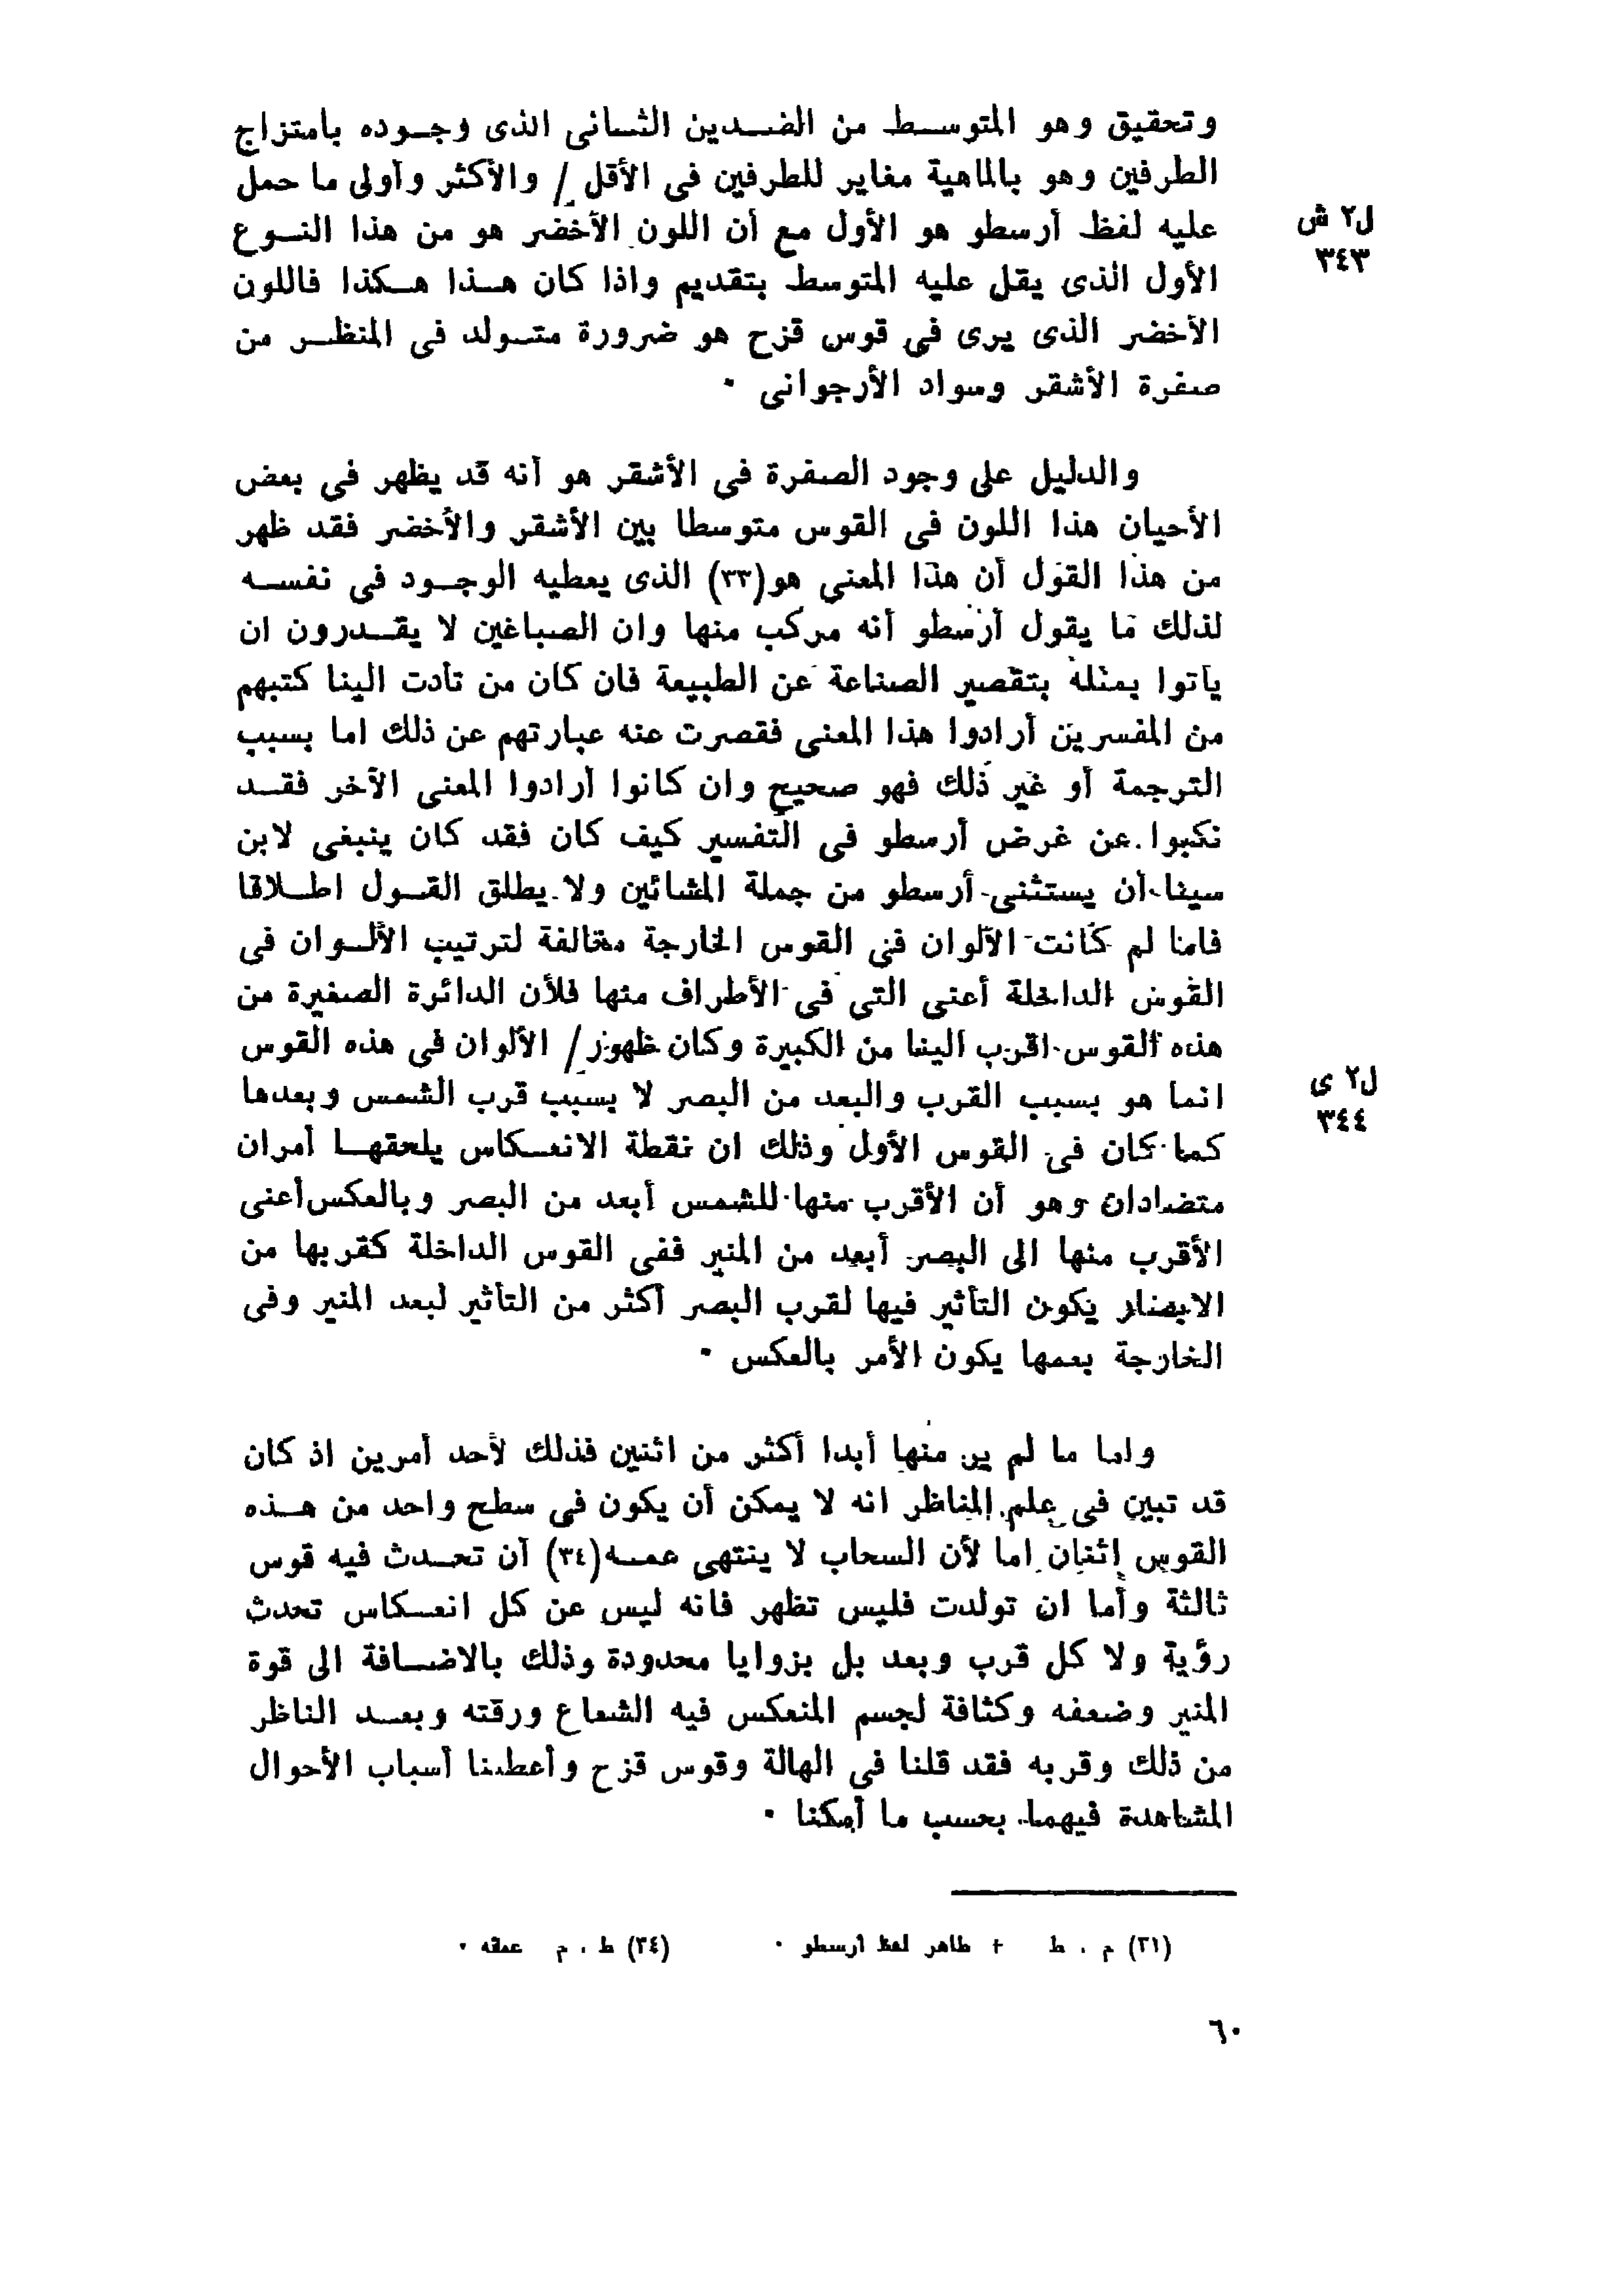 وتحقيق وهو المتوسط من الضدين الثانى الذى وجوده بامتزاج
الطرفين وهو بالماهية مغاير للطرفين فى الأقل / والأكثر وأولى ما حمل
ل٢ ش
عليه لفظ أرسطو هو الأول مع أن اللون الأخضر هو من هذا النوع
٣٤٣
الأول الذى يقل عليه المتوسط بتقديم واذا كان هذا هكذا فاللون
الأخضر الذى يرى فى قوس قزح هو ضرورة متولد فى المنظر من
صفرة الأشقر وسواد الأرجوانى ٠
والدليل على وجود الصفرة فى الأشقر هو أنه قد يظهر فى بعض
الأحيان هذا اللون فى القوس متوسطا بين الأشقر والأخضر فقد ظهر
من هذا القول أن هذا المعنى هو(٣٣) الذى يعطيه الوجود فى نفسه
لذلك ما يقول أرسطو أنه مركب منها وان الصباغين لا يقدرون ان
يأتوا بمثله بتقصير الصناعة عن الطبيعة فان كان من تأدت الينا كتبهم
من المفسرين أرادوا هذا المعنى فقصرت عنه عبارتهم عن ذلك اما بسبب
الترجمة أو غير ذلك فهو صحيح وان كانوا أرادوا المعنى الآخر فقد
نكبوا عن غرض أرسطو فى التفسير كيف كان فقد كان ينبغى لابن
سينا أن يستثنى أرسطو من جملة المشائين ولا يطلق القول اطلاقا
فاما لم كانت الألوان فى القوس الخارجة مخالفة لترتيب الألوان فى
القوس الداخلة أعنى التى فى الأطراف منها فلأن الدائرة الصغيرة من
هذه القوس اقرب الينا من الكبيرة وكان ظهور / الألوان فى هذه القوس
ل٢ ى
انما هو بسبب القرب والبعد من البصر لا بسبب قرب الشمس وبعدها
٣٤٤
كما كان فى القوس الأول وذلك ان نقطة الانعكاس يلحقها أمران
متضادان وهو أن الأقرب منها للشمس أبعد من البصر وبالعكس أعنى
الأقرب منها الى البصر أبعد من المنير ففى القوس الداخلة كقربها من
الابصار يكون التأثير فيها لقرب البصر أكثر من التأثير لبعد المنير وفى
الخارجة بعمها يكون الأمر بالعكس ٠
واما ما لم ير منها أبدا أكثر من اثنين فذلك لأحد أمرين اذ كان
قد تبين فى علم المناظر انه لا يمكن أن يكون فى سطح واحد من هذه
القوس إثنان اما لأن السحاب لا ينتهى عمه(٣٤) أن تحدث فيه قوس
ثالثة وأما ان تولدت فليس تظهر فانه ليس عن كل انعكاس تحدث
رؤية ولا كل قرب وبعد بل بزوايا محدودة وذلك بالاضافة الى قوة
المنير وضعفه وكثافة لجسم المنعكس فيه الشعاع ورقته وبعد الناظر
من ذلك وقربه فقد قلنا فى الهالة وقوس قزح وأعطينا أسباب الأحوال
المشاهدة فيهما بحسب ما أمكنا ٠
(٣١) م ، ط + ظاهر لفظ أرسطو ٠ (٣٤) ط ، م عمقه ٠
٦٠